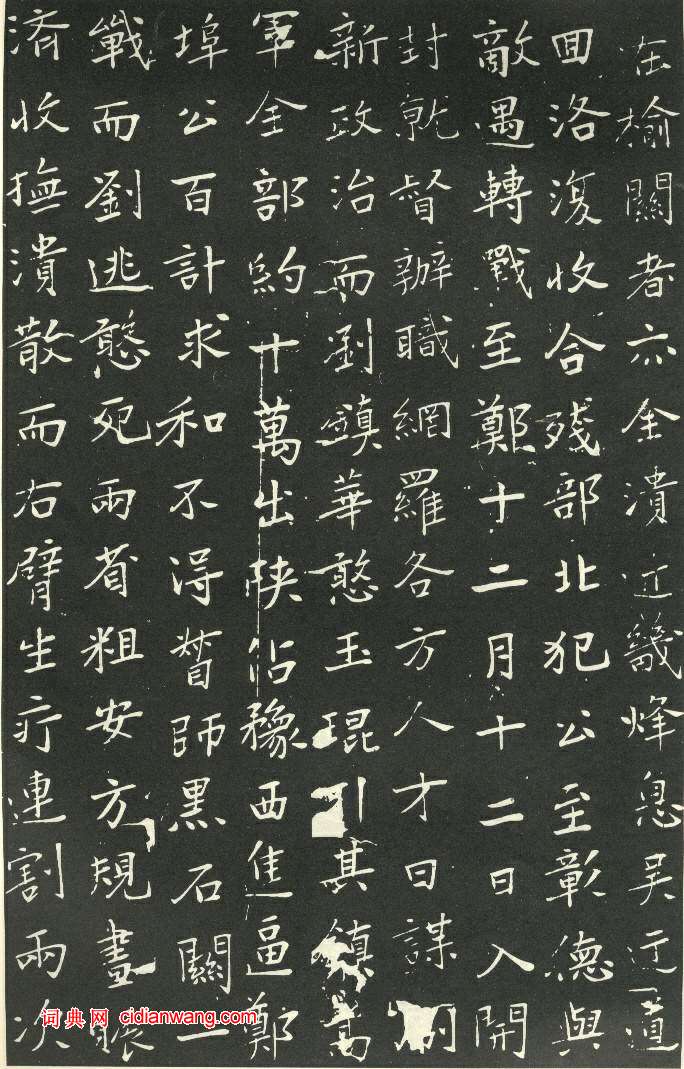 在榆關者亦全潰近畿烽息吳迂道
回洛復收合殘部北犯公至彰德與
敵遇轉戰至鄭十二月十二日入開
封就督辦職網羅各方人才曰謀
新政治而劉鎮華憨玉琨引其鎮嵩
軍全部約十萬出陝佔豫西進逼鄭
埠公百計求和不得誓師黑石關一
戰而劉逃憨死兩省粗安方規畫賑
濟收撫潰散而右臂生疔連割兩次
词典网 cidianwang.com